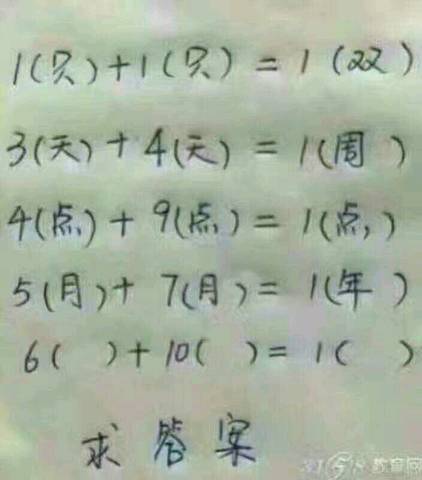 1(只)+1(只)=1(双)
3(天)+4(天)=1(周)
4(点)+9(点)=1(点)
5(月)+7(月)=1(年)
6( )+10( )=1( )
求答案
教育网